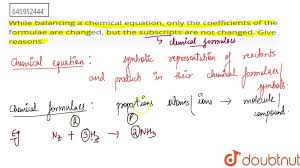 645952444
While balancing a chemical equation, only the coefficients of the
formulae are changed, but the subscripts are not changed. Give
reasons.
→ chemical formulaes
Chemical equation : symbolic representation of reactants
and products in their chemical formulaes/
symbols
Chemical formulaes : proportions atoms/ions → molecule/
compound.
Eg N₂ + 3H₂ → 2NH₃
doubtnut